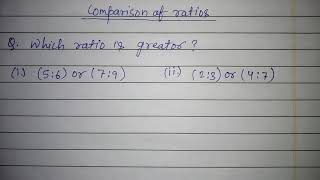 Comparison of ratios
Q. Which ratio is greator?
(i) (5:6) or (7:9) (ii) (2:3) or (4:7)